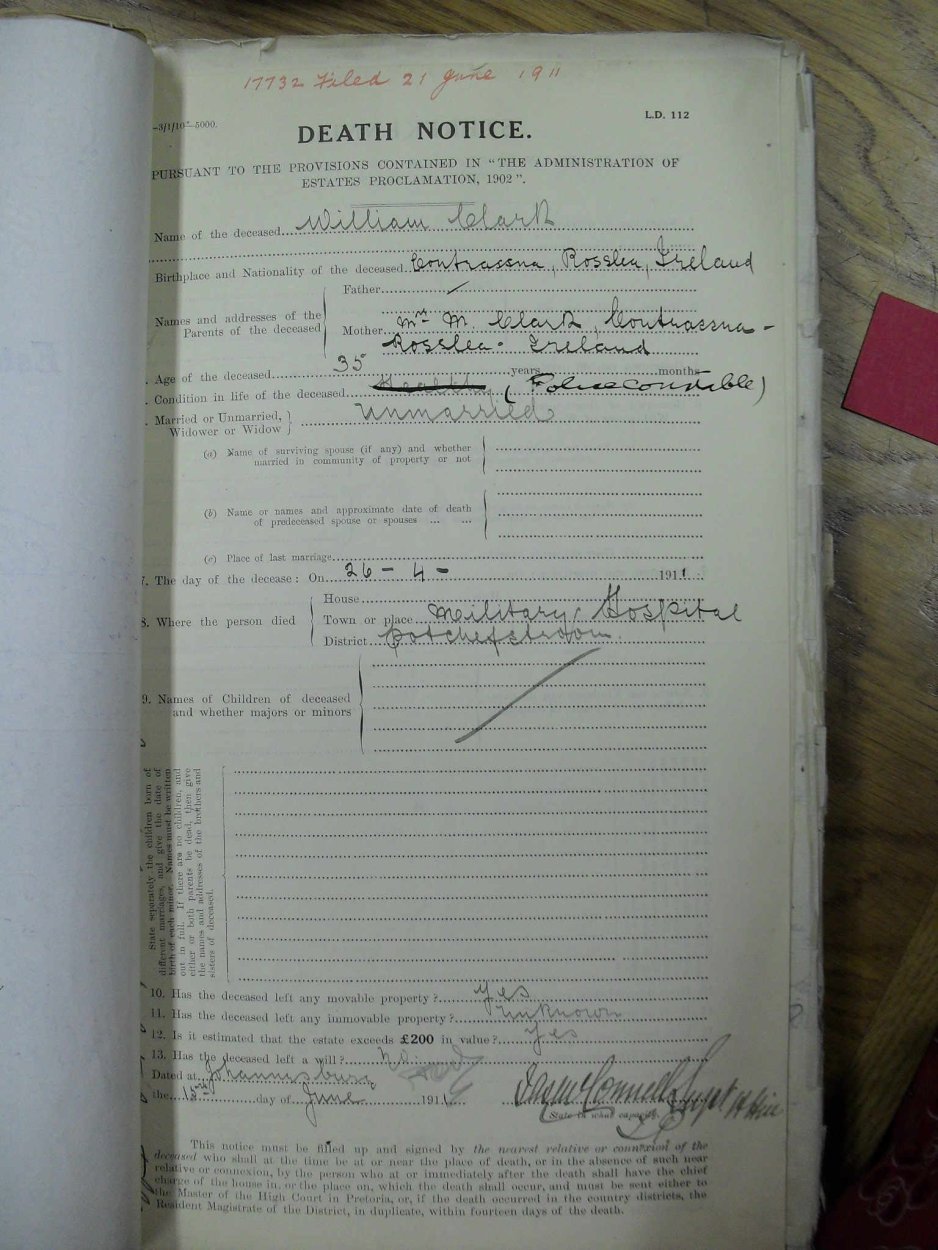 17732 Filed 21 June 1911
—3/1/10—5000.
L.D. 112
DEATH NOTICE.
PURSUANT TO THE PROVISIONS CONTAINED IN "THE ADMINISTRATION OF
ESTATES PROCLAMATION, 1902".
Name of the deceased William Clark
Birthplace and Nationality of the deceased Contrassna, Rosslea, Ireland
Names and addresses of the Parents of the deceased
Father
Mother Mrs M. Clark, Contrassna -
Rosslea - Ireland
Age of the deceased 35 years months
Condition in life of the deceased Healthy (Police constable)
Married or Unmarried, Widower or Widow Unmarried
(a) Name of surviving spouse (if any) and whether
married in community of property or not
(b) Name or names and approximate date of death
of predeceased spouse or spouses ... ...
(c) Place of last marriage
7. The day of the decease: On 26 - 4 - 1911.
8. Where the person died
House
Town or place Military Hospital
District Potchefstroom
9. Names of Children of deceased
and whether majors or minors
State separately the children born of
different marriages, and give the date of
birth of each minor. Names must be written
out in full. If there are no children, and
either or both parents be dead, then give
the names and addresses of the brothers and
sisters of deceased.
10. Has the deceased left any movable property? Yes
11. Has the deceased left any immovable property? Unknown
12. Is it estimated that the estate exceeds £200 in value? Yes
13. Has the deceased left a will? No
Dated at Johannesburg
the 15 day of June 1911
State in what capacity.
This notice must be filled up and signed by the nearest relative or connexion of the
deceased who shall at the time be at or near the place of death, or in the absence of such near
relative or connexion, by the person who at or immediately after the death shall have the chief
charge of the house in, or the place on, which the death shall occur, and must be sent either to
the Master of the High Court in Pretoria, or, if the death occurred in the country districts, the
Resident Magistrate of the District, in duplicate, within fourteen days of the death.